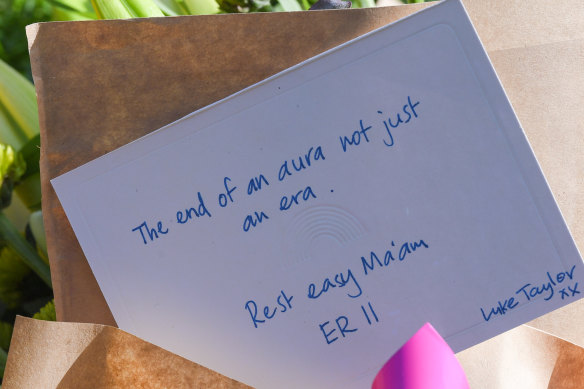 The end of an aura not just
an era.
Rest easy Ma'am
ER II
Luke Taylor
xx